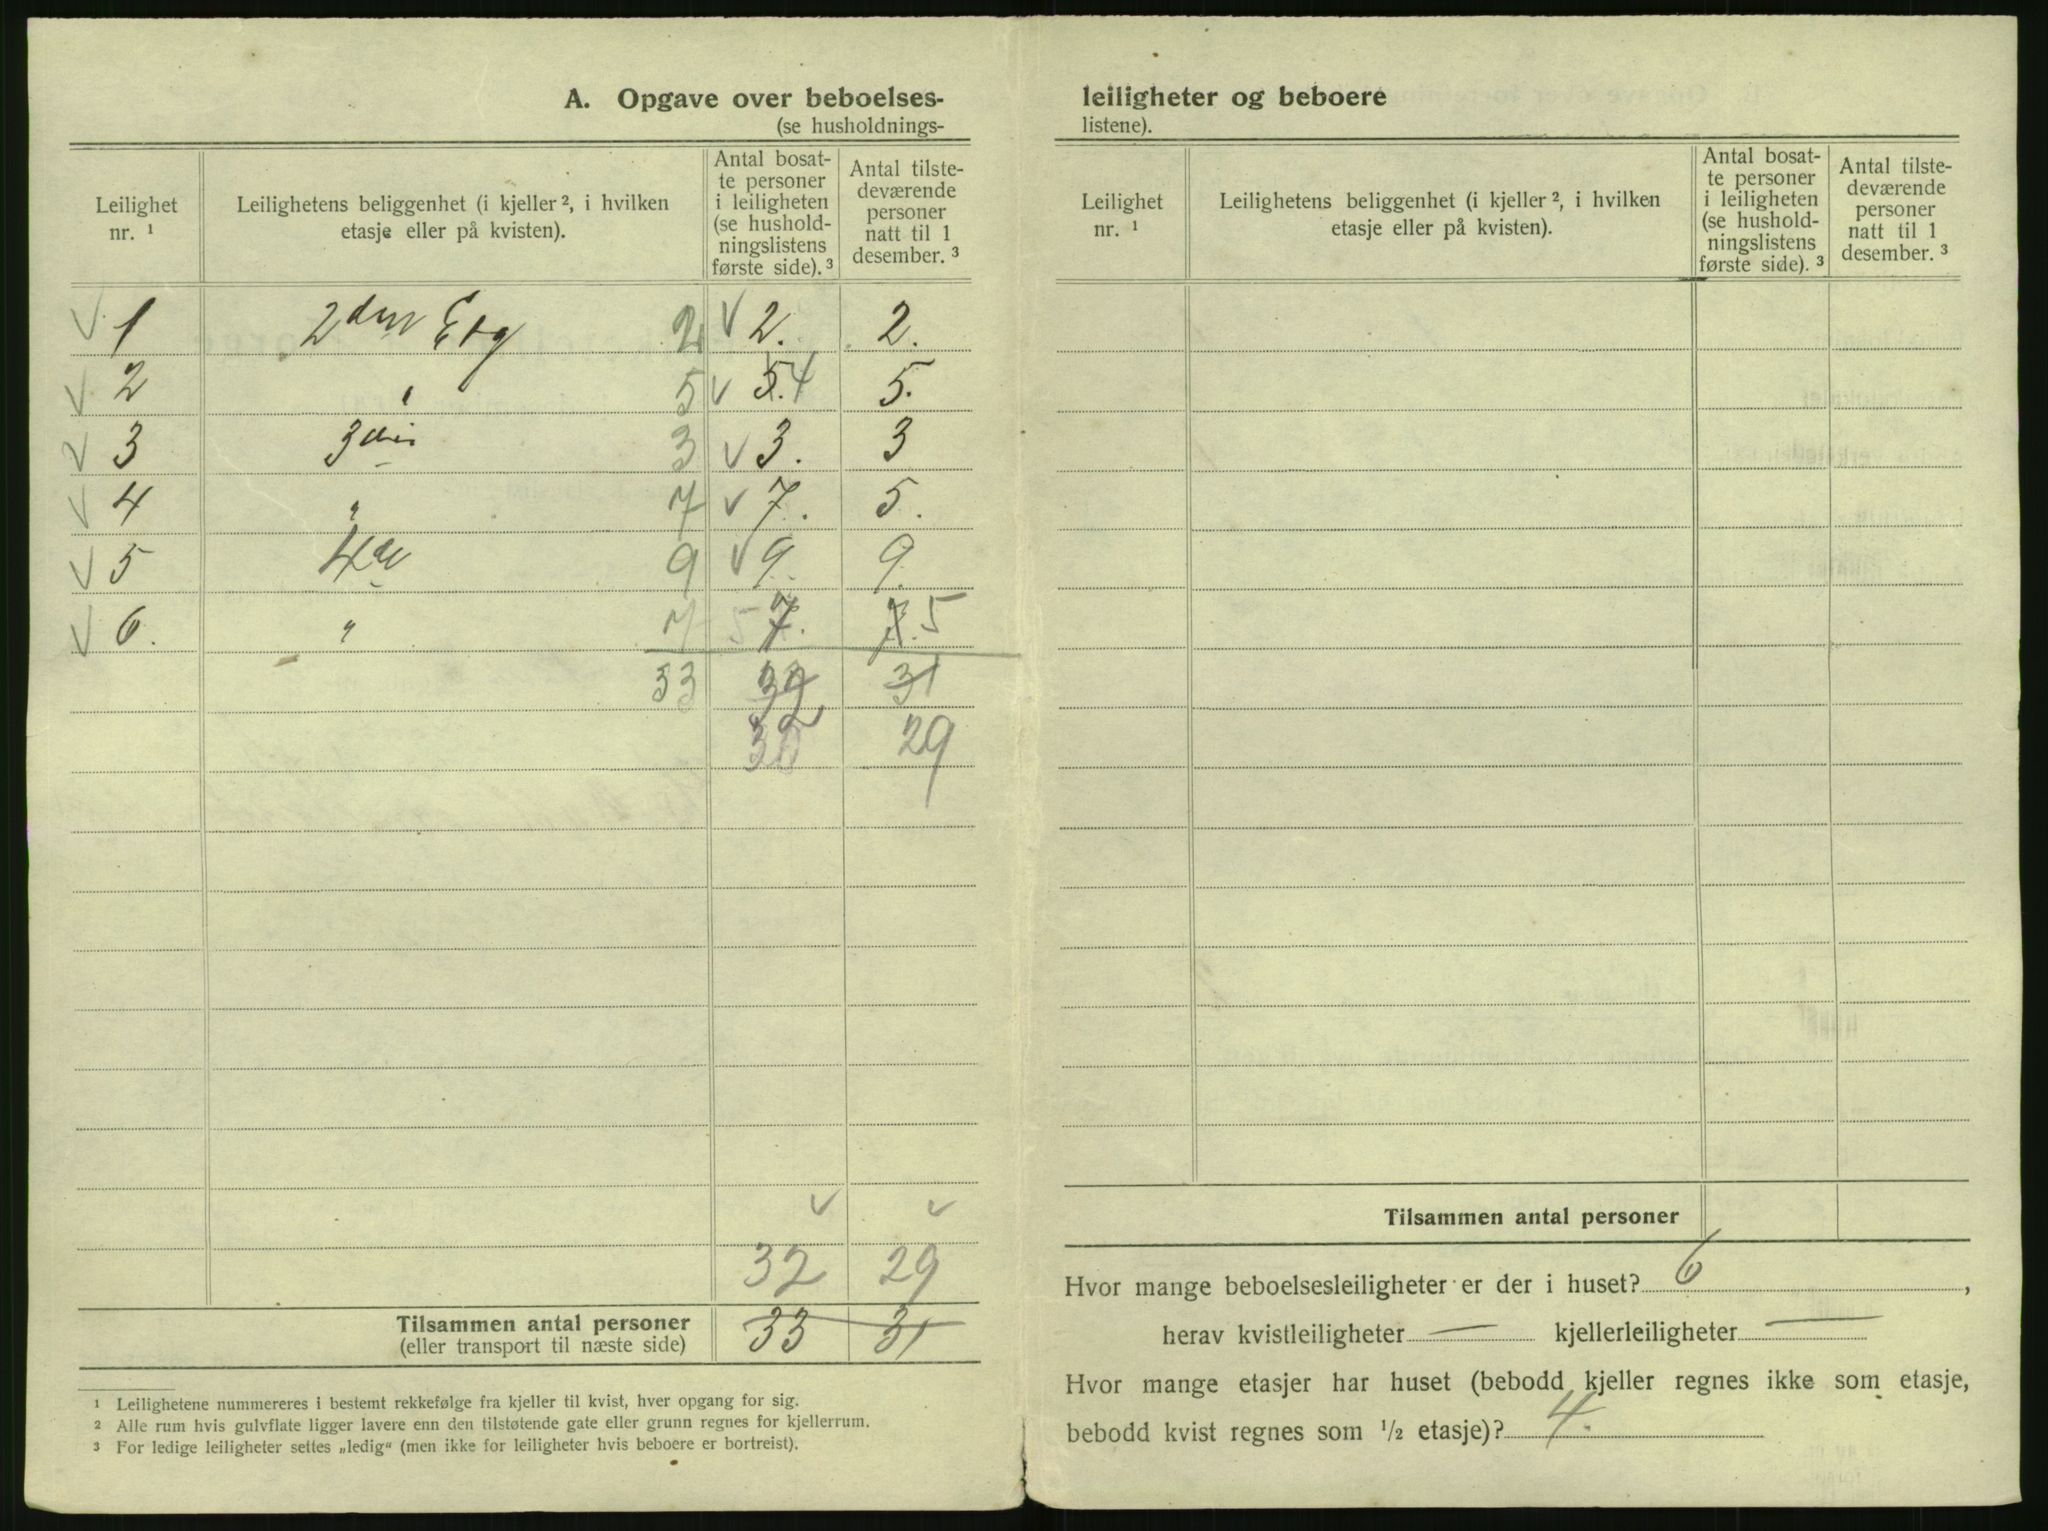 A. Opgave over beboelses-
(se husholdnings-
Leilighet nr. 1 | Leilighetens beliggenhet (i kjeller 2, i hvilken etasje eller på kvisten). | Antal bosatte personer i leiligheten (se husholdningslistens første side). 3 | Antal tilstedeværende personer natt til 1 desember. 3
√ 1 2den Etg 2 √ 2. 2.
√ 2 " 5 √ 5. 4 5.
√ 3 3die 3 √ 3. 3
√ 4 " 7 √ 7. 5.
√ 5 4de 9 √ 9. 9.
√ 6. " 7 5 7. 7. 5
33 31
29
√ √
32 29
Tilsammen antal personer 33 31
(eller transport til næste side)
1 Leilighetene nummereres i bestemt rekkefølge fra kjeller til kvist, hver opgang for sig.
2 Alle rum hvis gulvflate ligger lavere enn den tilstøtende gate eller grunn regnes for kjellerrum.
3 For ledige leiligheter settes „ledig“ (men ikke for leiligheter hvis beboere er bortreist).
leiligheter og beboere
listene).
Leilighet nr. 1 | Leilighetens beliggenhet (i kjeller 2, i hvilken etasje eller på kvisten). | Antal bosatte personer i leiligheten (se husholdningslistens første side). 3 | Antal tilstedeværende personer natt til 1 desember. 3
Tilsammen antal personer
Hvor mange beboelsesleiligheter er der i huset? 6 ,
herav kvistleiligheter — kjellerleiligheter —
Hvor mange etasjer har huset (bebodd kjeller regnes ikke som etasje,
bebodd kvist regnes som 1/2 etasje)? 4.